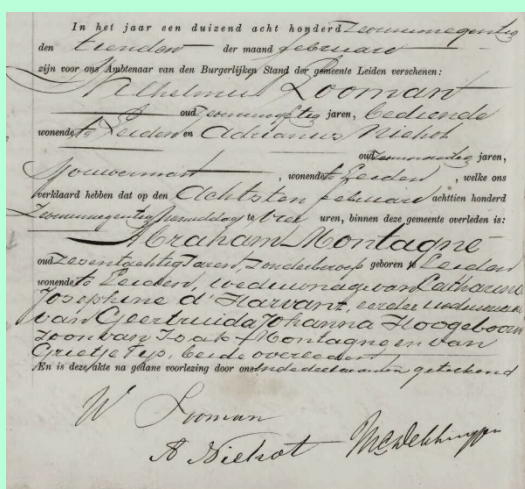 In het jaar een duizend acht honderd zevenennegentig
den tienden der maand februari
zijn voor ons Ambtenaar van den Burgerlijken Stand der gemeente Leiden verschenen:
Wilhelmus Looman
oud jaren, bediende
wonende te Leiden en Adrianus Niekot
oud jaren,
, wonende te Leiden, welke ons
verklaard hebben dat op den Achtsten februari achttien honderd
zevenennegentig namiddag te drie uren, binnen deze gemeente overleden is:
Abraham Montagne
oud zevenentachtig Jaren, zonder beroep geboren te Leiden
wonende te Leiden, weduwnaar van Catharina
Josephine d'Harvant, eerder weduwnaar
van Geertruida Johanna Hoogeboom
zoon van Isaak Montagne en van
Grietje Tijs, beide overleden
En is deze akte na gedane voorlezing door ons en de declaranten geteekend
W Looman
A Niekot